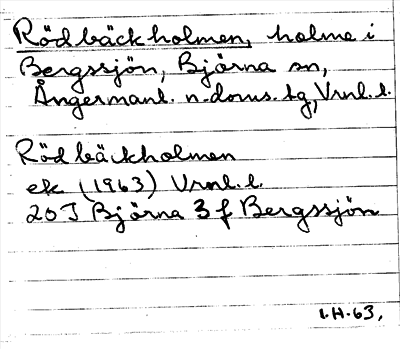 Rödbäckholmen, holme i
Bergssjön, Björna sn,
Ångermanl. n. doms. tg, Vrnl. l.
Rödbäckholmen
ek (1963) Vrnl. l.
20J Björna 3 f Bergssjön
I.H. 63,